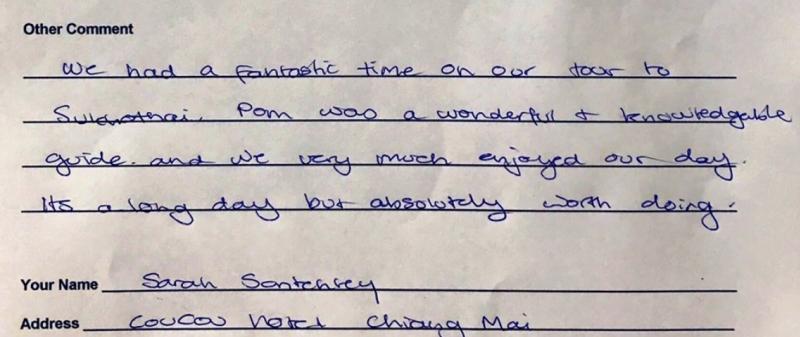 Other Comment
We had a fantastic time on our tour to
Sukhothai. Pom was a wonderful + knowledgable
guide. and we very much enjoyed our day.
Its a long day but absolutely worth doing.
Your Name Sarah
Address CouCou Hotel Chiang Mai